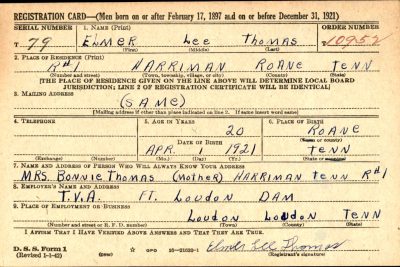 REGISTRATION CARD—(Men born on or after February 17, 1897 and on or before December 31, 1921)
SERIAL NUMBER 1. NAME (Print) ORDER NUMBER
T 79 ELMER Lee THOMAS T 10952
(First) (Middle) (Last)
2. PLACE OF RESIDENCE (Print)
R#1 HARRIMAN ROANE TENN
(Number and street) (Town, township, village, or city) (County) (State)
[THE PLACE OF RESIDENCE GIVEN ON THE LINE ABOVE WILL DETERMINE LOCAL BOARD
JURISDICTION; LINE 2 OF REGISTRATION CERTIFICATE WILL BE IDENTICAL]
3. MAILING ADDRESS
(SAME)
[Mailing address if other than place indicated on line 2. If same insert word same]
4. TELEPHONE 5. AGE IN YEARS 6. PLACE OF BIRTH
20 ROANE
DATE OF BIRTH (Town or county)
APR. 1921 TENN
(Exchange) (Number) (Mo.) (Day) (Yr.) (State or country)
7. NAME AND ADDRESS OF PERSON WHO WILL ALWAYS KNOW YOUR ADDRESS
MRS. BONNIE THOMAS (Mother) HARRIMAN TENN R#1
8. EMPLOYER'S NAME AND ADDRESS
T.V.A. FT. LOUDON DAM
9. PLACE OF EMPLOYMENT OR BUSINESS
LOUDON LOUDON TENN
(Number and street or R. F. D. number) (Town) (County) (State)
I AFFIRM THAT I HAVE VERIFIED ABOVE ANSWERS AND THAT THEY ARE TRUE.
D. S. S. Form 1 Elmer Lee Thomas
(Revised 1-1-42) (over) GPO 16—21630-1 (Registrant's signature)